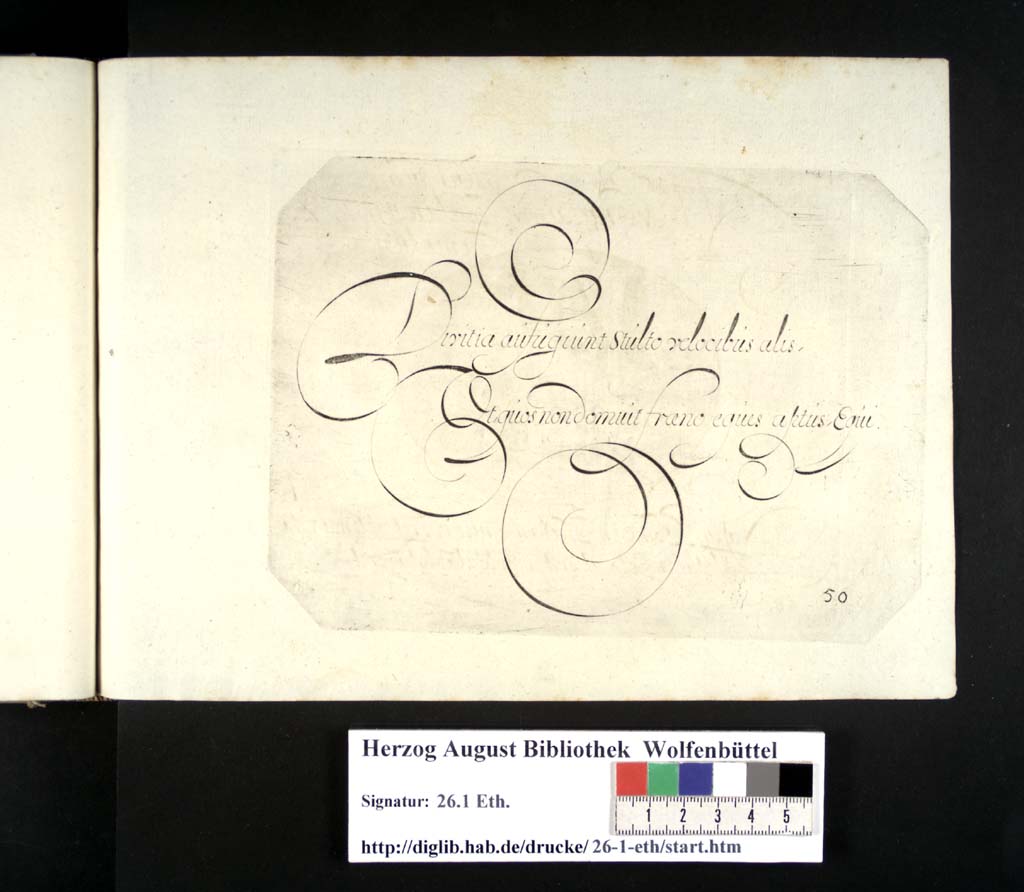 Divitiæ aufugiunt Stulto velocibus alis.
Et quos non Domuit fræno eques astus Equi.
50
Herzog August Bibliothek Wolfenbüttel
Signatur: 26.1 Eth.
1 2 3 4 5
http://diglib.hab.de/drucke/ 26-1-eth/start.htm